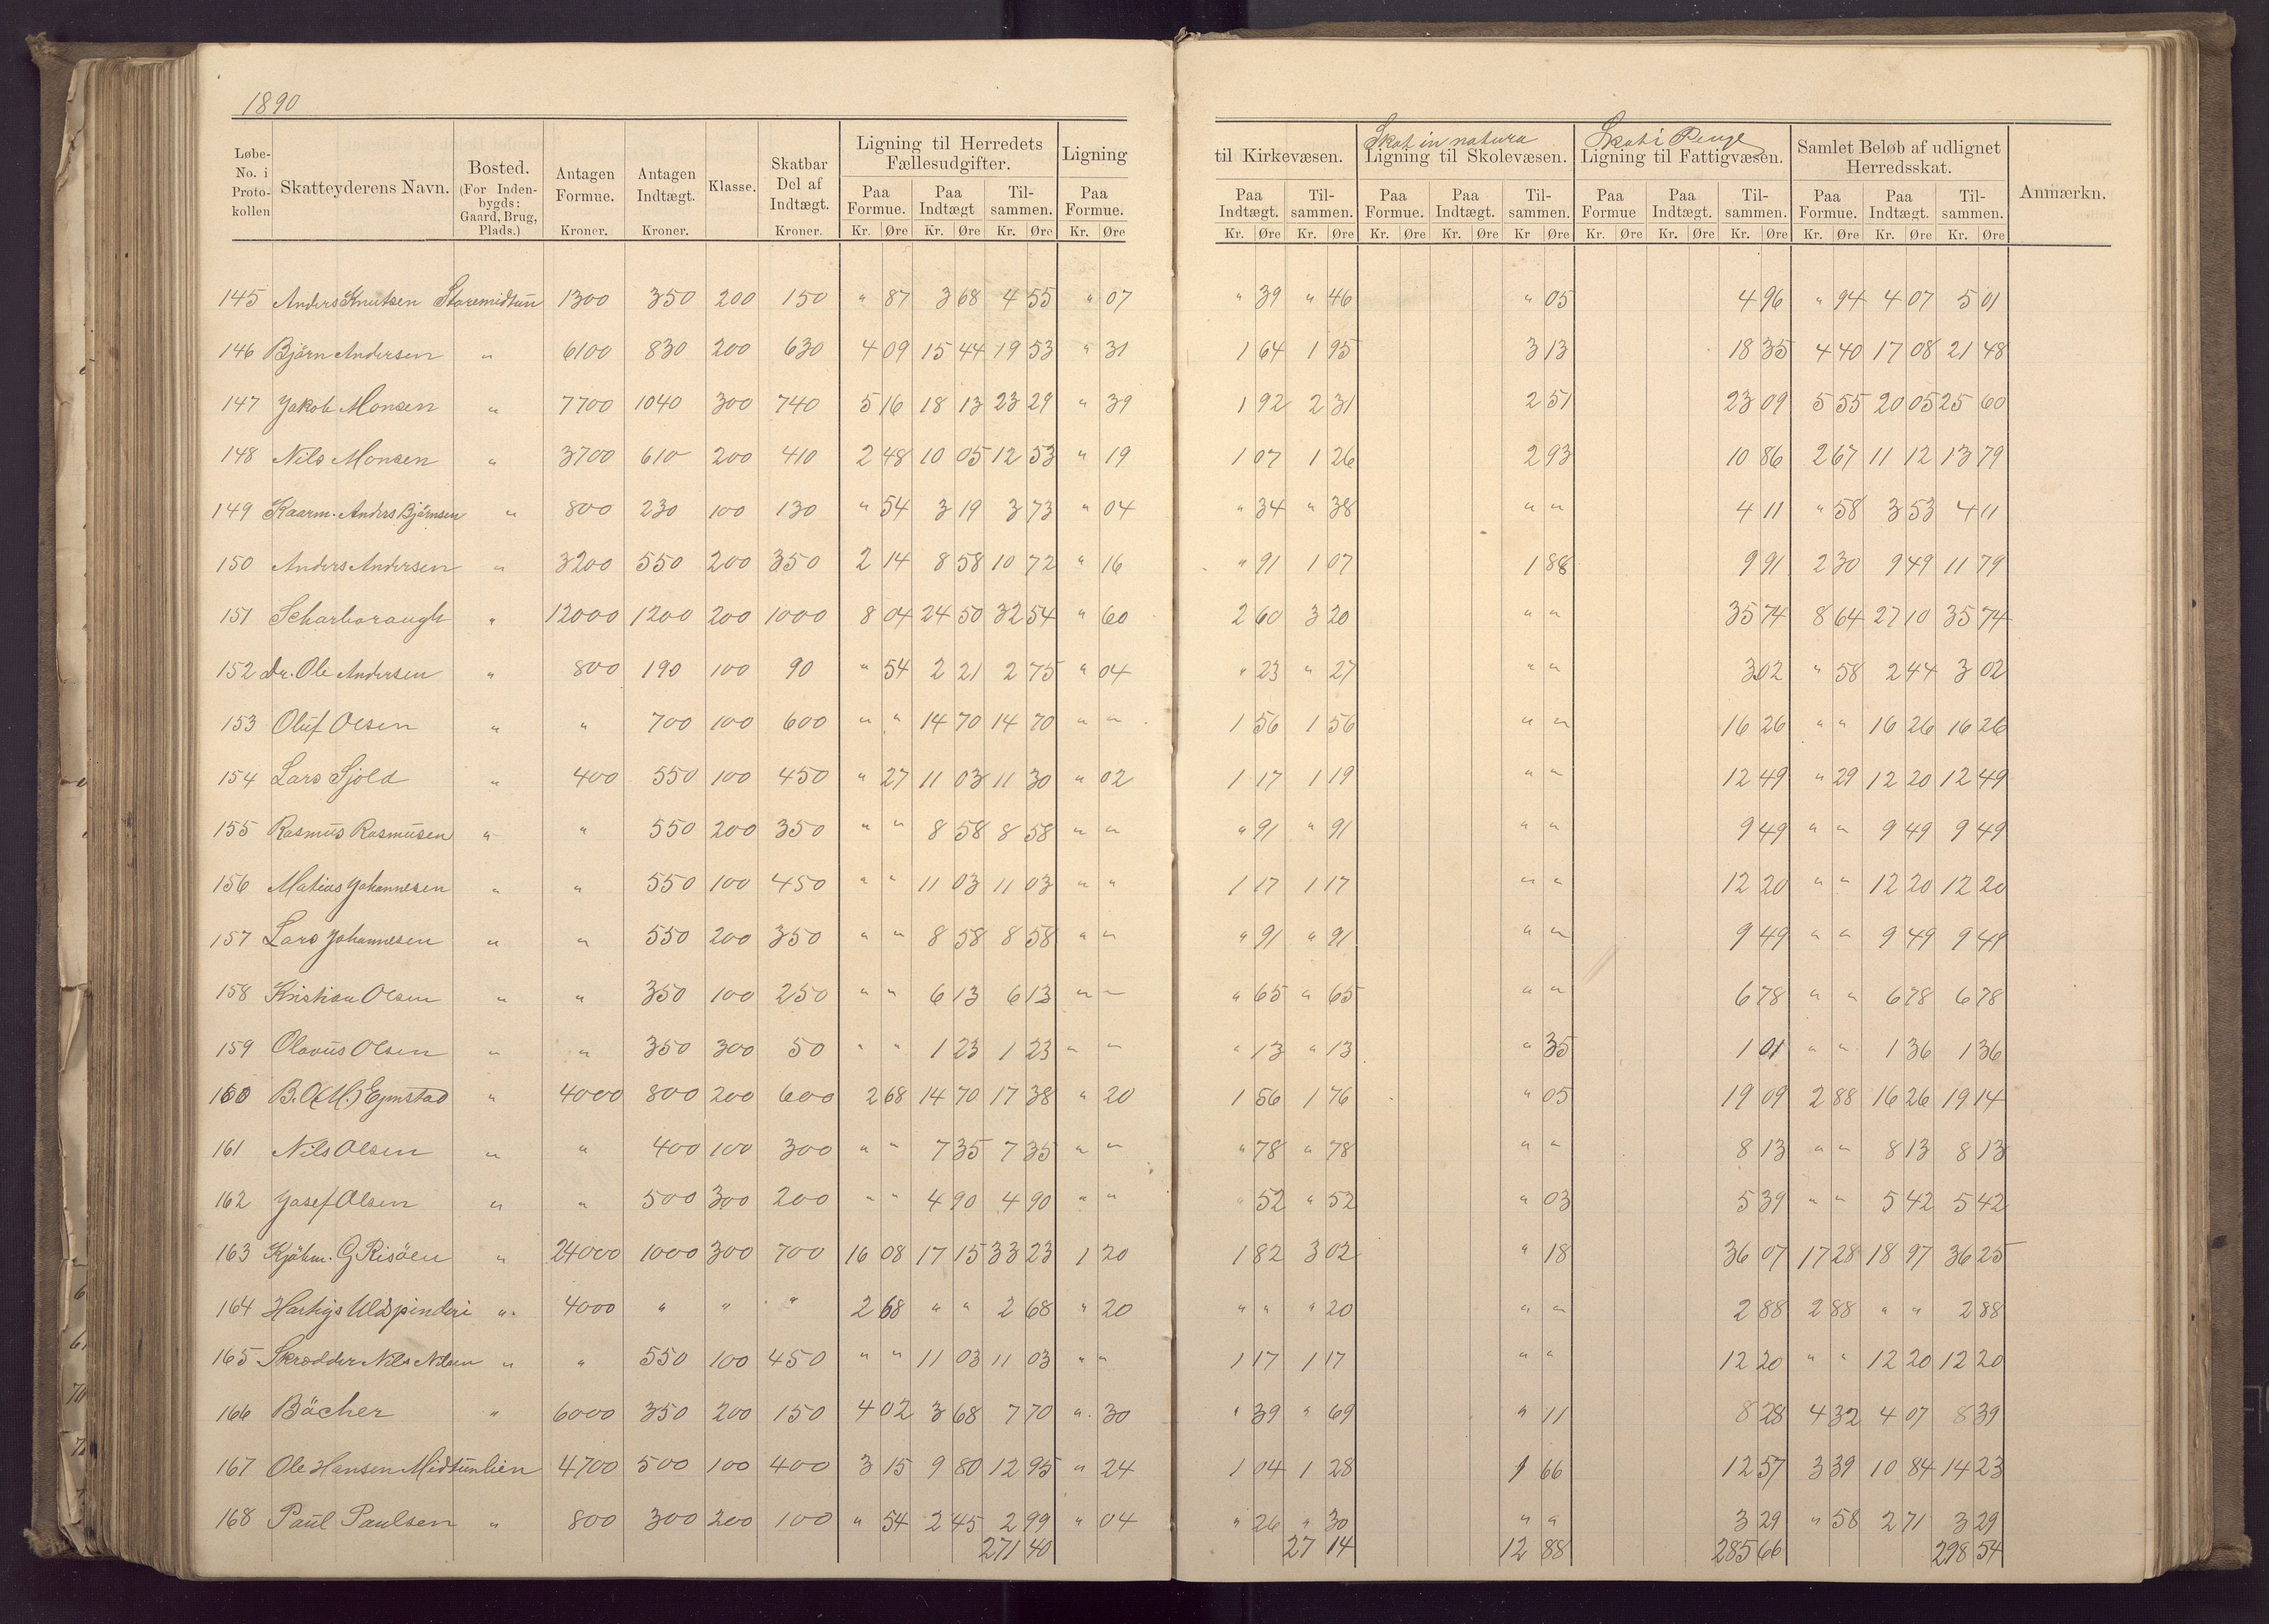 1890
Løbe-No. i Protokollen | Skatteyderens Navn. | Bosted. (For Indenbygds: Gaard, Brug, Plads.) | Antagen Formue. Kroner. | Antagen Indtægt. Kroner. | Klasse. | Skatbar Del af Indtægt. Kroner. | Ligning til Herredets Fællesudgifter. Paa Formue. Kr. Øre | Paa Indtægt Kr. Øre | Tilsammen. Kr. Øre | Ligning Paa Formue. Kr. Øre | til Kirkevæsen. Paa Indtægt. Kr. Øre | Tilsammen. Kr. Øre | Skat in natura Ligning til Skolevæsen. Paa Formue. Kr. Øre | Paa Indtægt. Kr. Øre | Tilsammen. Kr Øre | Skat i Penge Ligning til Fattigvæsen. Paa Formue Kr. Øre | Paa Indtægt. Kr. Øre | Tilsammen. Kr. Øre | Samlet Beløb af udlignet Herredsskat. Paa Formue. Kr. Øre | Paa Indtægt. Kr. Øre | Tilsammen. Kr. Øre | Anmærkn.
145 Anders Knutsen Storemidtun 1300 350 200 150 " 87 3 68 4 55 " 07 " 39 " 46 " 05 4 96 " 94 4 07 5 01
146 Björn Andersen " 6100 830 200 630 4 09 15 44 19 53 " 31 1 64 1 95 3 13 18 35 4 40 17 08 21 48
147 Jakob Monsen " 7700 1040 300 740 5 16 18 13 23 29 " 39 1 92 2 31 2 51 23 09 5 55 20 05 25 60
148 Nils Monsen " 3700 610 200 410 2 48 10 05 12 53 " 19 1 07 1 26 2 93 10 86 2 67 11 12 13 79
149 Kaarm. Anders Björnsen " 800 230 100 130 " 54 3 19 3 73 " 04 " 34 " 38 " " 4 11 " 58 3 53 4 11
150 Anders Andersen " 3200 550 200 350 2 14 8 58 10 72 " 16 " 91 1 07 1 88 9 91 2 30 9 49 11 79
151 Scharboraugh " 12000 1200 200 1000 8 04 24 50 32 54 " 60 2 60 3 20 " " 35 74 8 64 27 10 35 74
152 Dr. Ole Andersen " 800 190 100 90 " 54 2 21 2 75 " 04 " 23 " 27 " " 3 02 " 58 2 44 3 02
153 Oluf Olsen " " 700 100 600 " " 14 70 14 70 " " 1 56 1 56 " " 16 26 " " 16 26 16 26
154 Lars Sjold " 400 550 100 450 " 27 11 03 11 30 " 02 1 17 1 19 " " 12 49 " 29 12 20 12 49
155 Rasmus Rasmusen " " 550 200 350 " " 8 58 8 58 " " " 91 " 91 " " 9 49 " " 9 49 9 49
156 Matias Johannesen " " 550 100 450 " " 11 03 11 03 " " 1 17 1 17 " " 12 20 " " 12 20 12 20
157 Lars Johannesen " " 550 200 350 " " 8 58 8 58 " " " 91 " 91 " " 9 49 " " 9 49 9 49
158 Kristian Olsen " " 350 100 250 " " 6 13 6 13 " " " 65 " 65 " " 6 78 " " 6 78 6 78
159 Olavus Olsen " " 350 300 50 " " 1 23 1 23 " " " 13 " 13 " 35 1 01 " " 1 36 1 36
160 " 4000 800 200 600 2 68 14 70 17 38 " 20 1 56 1 76 " 05 19 09 2 88 16 26 19 14
161 Nils Olsen " " 400 100 300 " " 7 35 7 35 " " " 78 " 78 " " 8 13 " " 8 13 8 13
162 Josef Olsen " " 500 300 200 " " 4 90 4 90 " " " 52 " 52 " 03 5 39 " " 5 42 5 42
163 Kjöbm. G Risöen " 24000 1000 300 700 16 08 17 15 33 23 1 20 1 82 3 02 " 18 36 07 17 28 18 97 36 25
164 Uldspinderi " 4000 " " " 2 68 " " 2 68 " 20 " " " 20 " " 2 88 2 88 " " 2 88
165 Skrædder Nils Nilsen " " 550 100 450 " " 11 03 11 03 " " 1 17 1 17 " " 12 20 " " 12 20 12 20
166 Böcher " 6000 350 200 150 4 02 3 68 7 70 " 30 " 39 " 69 " 11 8 28 4 32 4 07 8 39
167 Ole Hansen Midtunlien 4700 500 100 400 3 15 9 80 12 95 " 24 1 04 1 28 1 66 12 57 3 39 10 84 14 23
168 Paul Paulsen " 800 300 200 100 " 54 2 45 2 99 " 04 " 26 " 30 " " 3 29 " 58 2 71 3 29
271 40 27 14 12 88 285 66 298 54